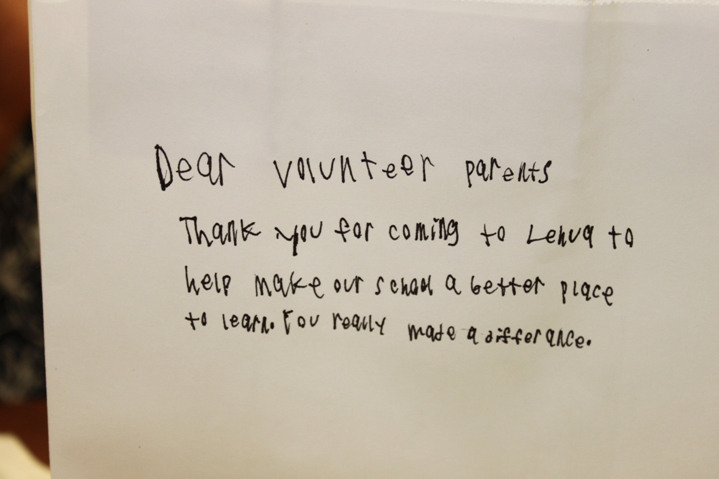 Dear volunteer parents
Thank you for coming to Lehua to
help make our school a better place
to learn. You really made a differance.